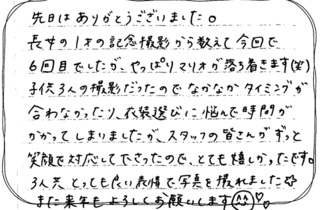 先日はありがとうございました。
長女の1才の記念撮影から数えて今回で
6回目でしたが、やっぱりマリオが落ち着きます(笑)
子供3人の撮影だったのでなかなかタイミングが
合わなかったり、衣装選びに悩んで時間が
かかってしまいましたが、スタッフの皆さんがずっと
笑顔で対応して下さったので、とても嬉しかったです。
3人共とっても良い表情で写真を撮れました
また来年もよろしくお願いします♡。